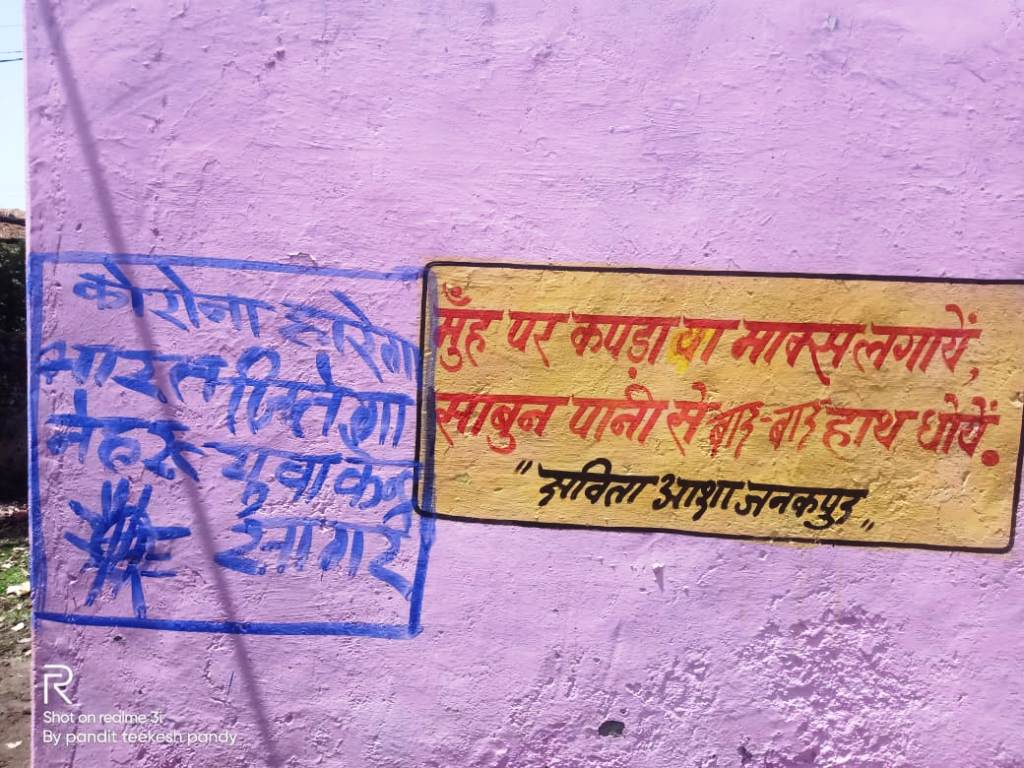 कोरोना हारेगा
भारत जितेगा
नेहरू युवा केन्द्र
सागर
मुँह पर कपड़ा या माक्स लगायें,
साबुन पानी से बार-बार हाथ धोयें.
"सविता आशा जनकपुर"
R
Shot on realme 3i
By pandit teekesh pandy